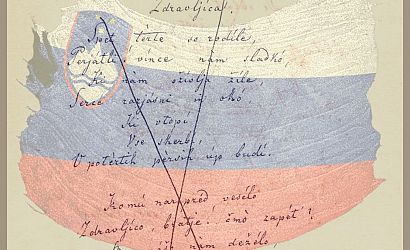 Zdravljica!
Spet terte so rodile,
Perjatli! vince nam sladkó,
Ki nam oživlja žile,
Serce razjásni in okó
Ki vtopí
Vse skerbi,
V potertih persih úp budi.
Komú narpred veselo
Zdravljico, bratje! čmò zapét?
nam deželo